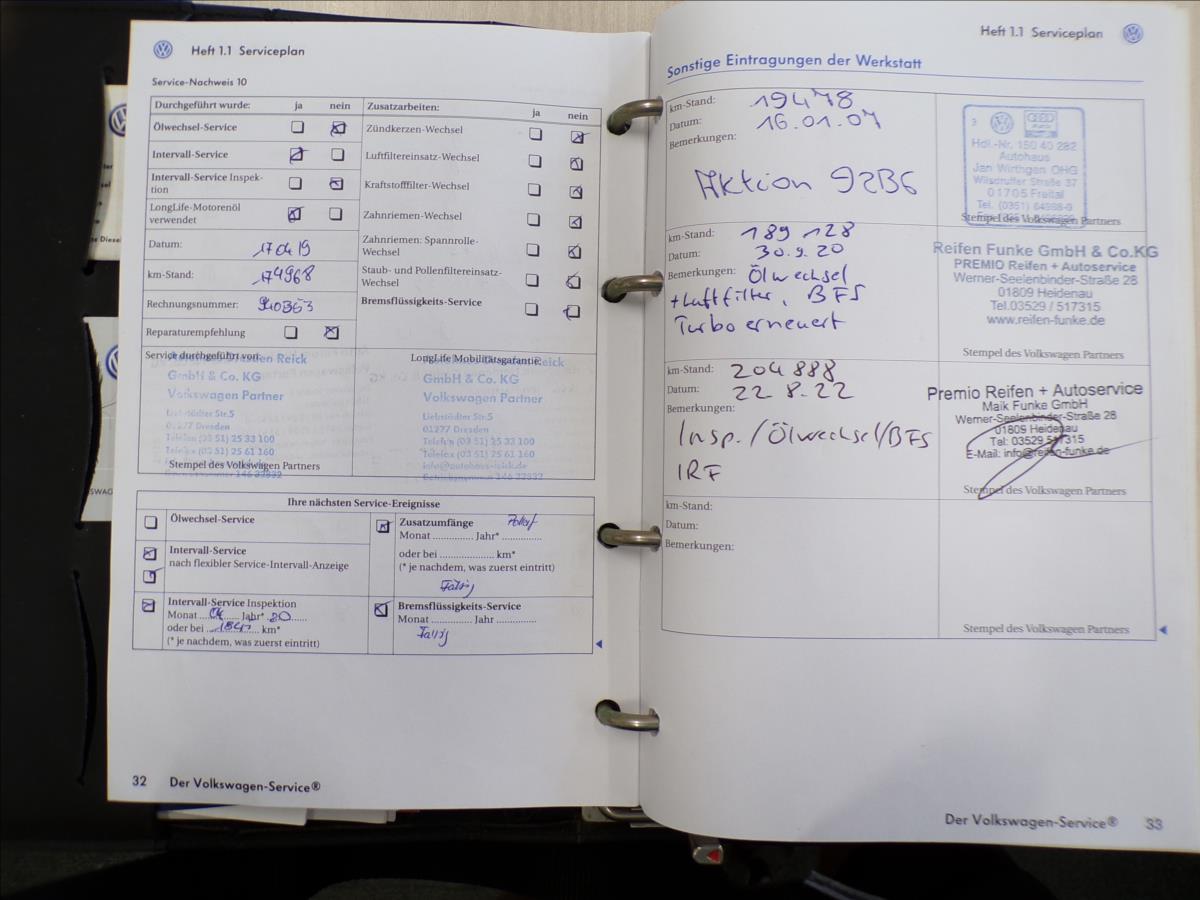 Heft 1.1 Serviceplan
Service-Nachweis 10
Durchgeführt wurde: ja nein
Ölwechsel-Service
Intervall-Service
Intervall-Service Inspek-
tion
LongLife-Motorenöl
verwendet
Datum: 170419
km-Stand: 174968
Rechnungsnummer:
Reparaturempfehlung
Zusatzarbeiten: ja nein
Zündkerzen-Wechsel
Luftfiltereinsatz-Wechsel
Kraftstofffilter-Wechsel
Zahnriemen-Wechsel
Zahnriemen: Spannrolle-
Wechsel
Staub- und Pollenfiltereinsatz-
Wechsel
Bremsflüssigkeits-Service
Service durchgeführt von:
Dresden Reick
GmbH & Co. KG
Volkswagen Partner
Liebstädter Str.5
01277 Dresden
Telefon (03 51) 25 33 100
Telefax (03 51) 25 61 160
Stempel des Volkswagen Partners
LongLife Mobilitätsgarantie:
Reick
GmbH & Co. KG
Volkswagen Partner
Liebstädter Str.5
01277 Dresden
Telefon (03 51) 25 33 100
Telefax (03 51) 25 61 160
info@autohaus-reick.de
Ihre nächsten Service-Ereignisse
Ölwechsel-Service
Intervall-Service
nach flexibler Service-Intervall-Anzeige
Intervall-Service Inspektion
Monat 04 Jahr* 20
oder bei km*
(* je nachdem, was zuerst eintritt)
Zusatzumfänge
Monat .............. Jahr* ..............
oder bei ..................... km*
(* je nachdem, was zuerst eintritt)
Fällig
Bremsflüssigkeits-Service
Monat .............. Jahr ..............
Fällig
32 Der Volkswagen-Service®
Heft 1.1 Serviceplan
Sonstige Eintragungen der Werkstatt
km-Stand: 19478
Datum: 16.01.07
Bemerkungen:
Aktion 92B6
Hdl.-Nr. 150 40 282
Autohaus
Jan Wirthgen OHG
Wilsdruffer Straße 37
01705 Freital
Stempel des Volkswagen Partners
km-Stand: 189 128
Datum: 30.9.20
Bemerkungen: Ölwechsel
+Luftfilter, BFS
Turbo erneuert
Reifen Funke GmbH & Co.KG
PREMIO Reifen + Autoservice
Werner-Seelenbinder-Straße 28
01809 Heidenau
Tel.03529 / 517315
www.reifen-funke.de
Stempel des Volkswagen Partners
km-Stand: 204 888
Datum: 22.8.22
Bemerkungen:
Insp./Ölwechsel/BFS
IRF
Premio Reifen + Autoservice
Maik Funke GmbH
Werner-Seelenbinder-Straße 28
01809 Heidenau
Tel: 03529 517315
E-Mail: info@reifen-funke.de
Stempel des Volkswagen Partners
km-Stand:
Datum:
Bemerkungen:
Stempel des Volkswagen Partners
Der Volkswagen-Service® 33